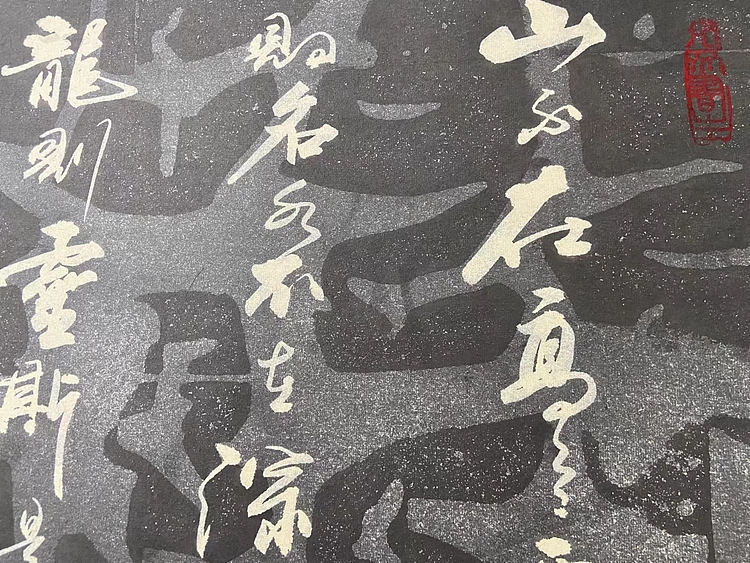 山不在高
則名水不在深
龍則靈斯是